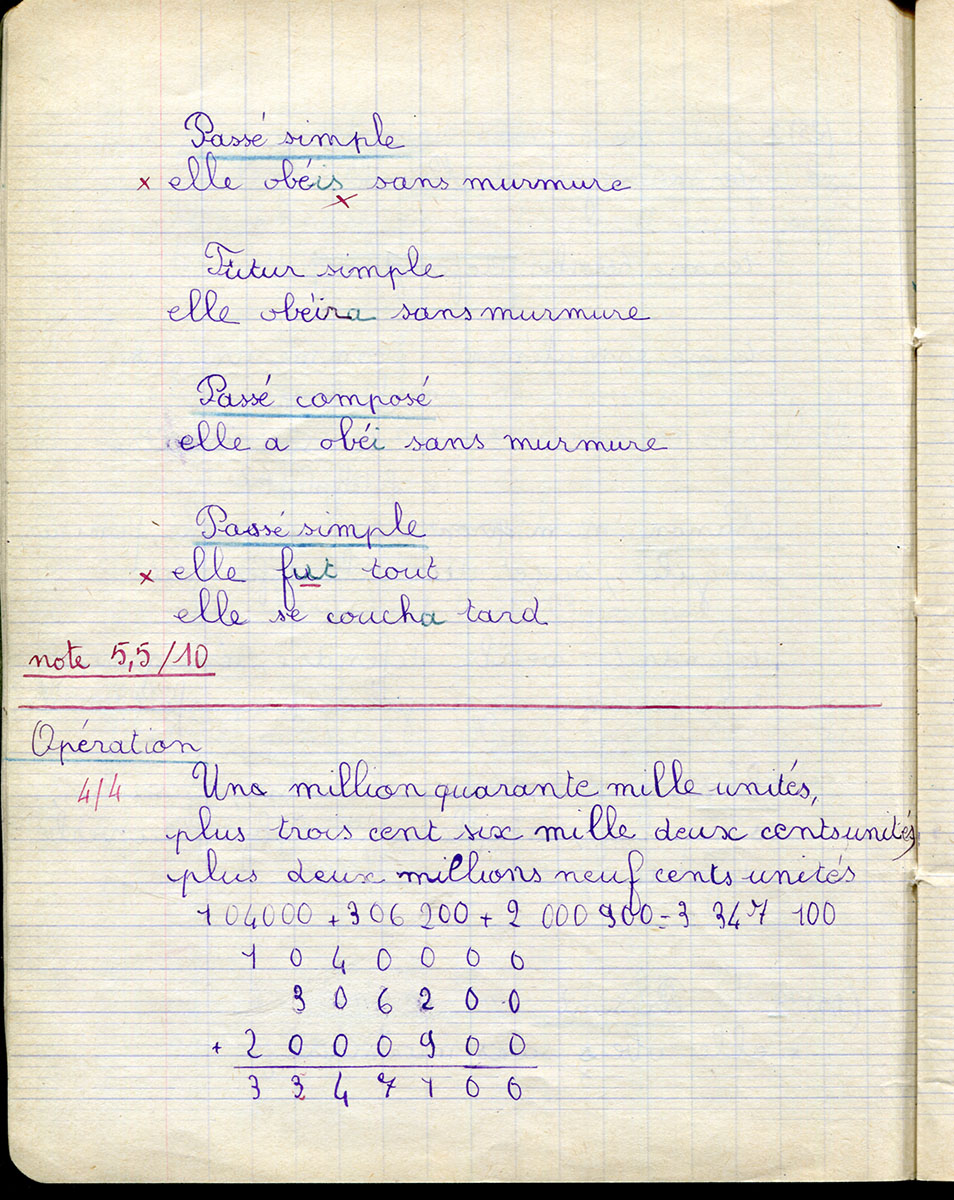 Passé simple
x elle obéis sans murmure
x
Futur simple
elle obéira sans murmure
Passé composé
elle a obéi sans murmure
Passé simple
x elle fut tout
elle se coucha tard
note 5,5/10
Opération
4/4 Una million quarante mille unités,
plus trois cent six mille deux cents unités,
plus deux millions neuf cents unités
104000 + 306 200 + 2 000 900 = 3 347 100
1 0 4 0 0 0 0
3 0 6 2 0 0
+ 2 0 0 0 9 0 0
3 3 4 7 1 0 0